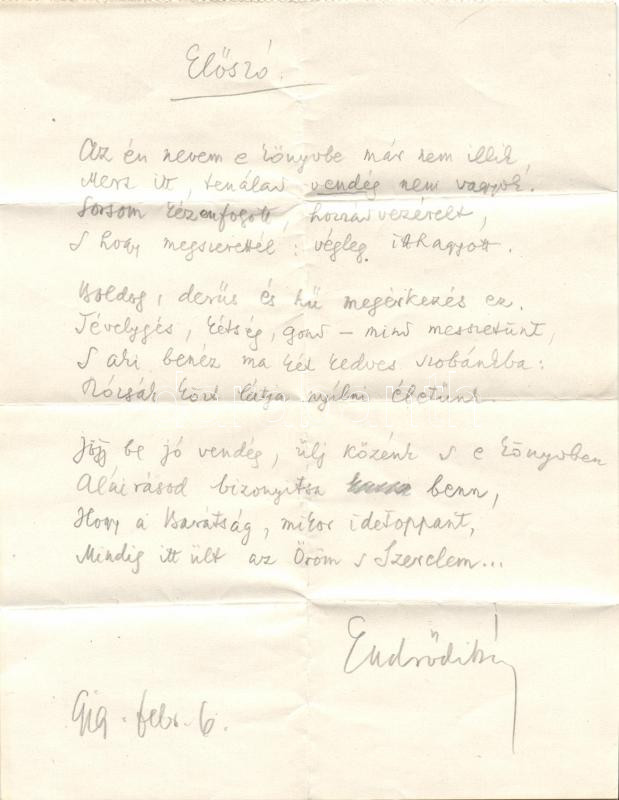 Előszó.
Az én nevem e könyvbe már nem illik,
Mert itt, tenálad vendég nem vagyok!
Sorsom kézenfogott, hozzád vezérelt,
S hogy megszerettél: végleg itthagyott.
Boldog, derűs és hű megérkezés ez.
Tévelygés, kétség, gond – mind messzetünt,
S aki benéz ma két kedves szobánkba:
Rózsák közt látja nyílni életünk
Jőjj be jó vendég, ülj közénk s e könyvben
Aláirásod bizonyitsa benn,
Hogy a Barátság, mikor idetoppant,
Mindig itt ült az Öröm s Szerelem...
Endrődi
919. febr. 6.